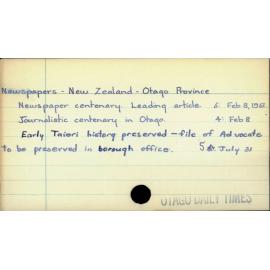 Newspapers - New Zealand - Otago Province
Newspaper centenary. Leading article. 6: Feb 8, 1961.
Journalistic centenary in Otago. 4: Feb 8
Early Taieri history preserved - file of Advocate
to be preserved in borough office. July 31
OTAGO DAILY TIMES